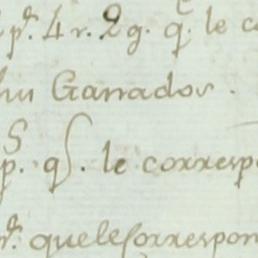 pr. 4 r. 2 g. q. le co
Ganados.
p.s qs. le corresp
r. quele Correspon